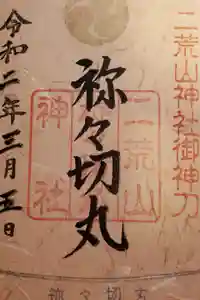 二荒山神社御神刀
祢々切丸
二荒山
神社
令和二年三月五日